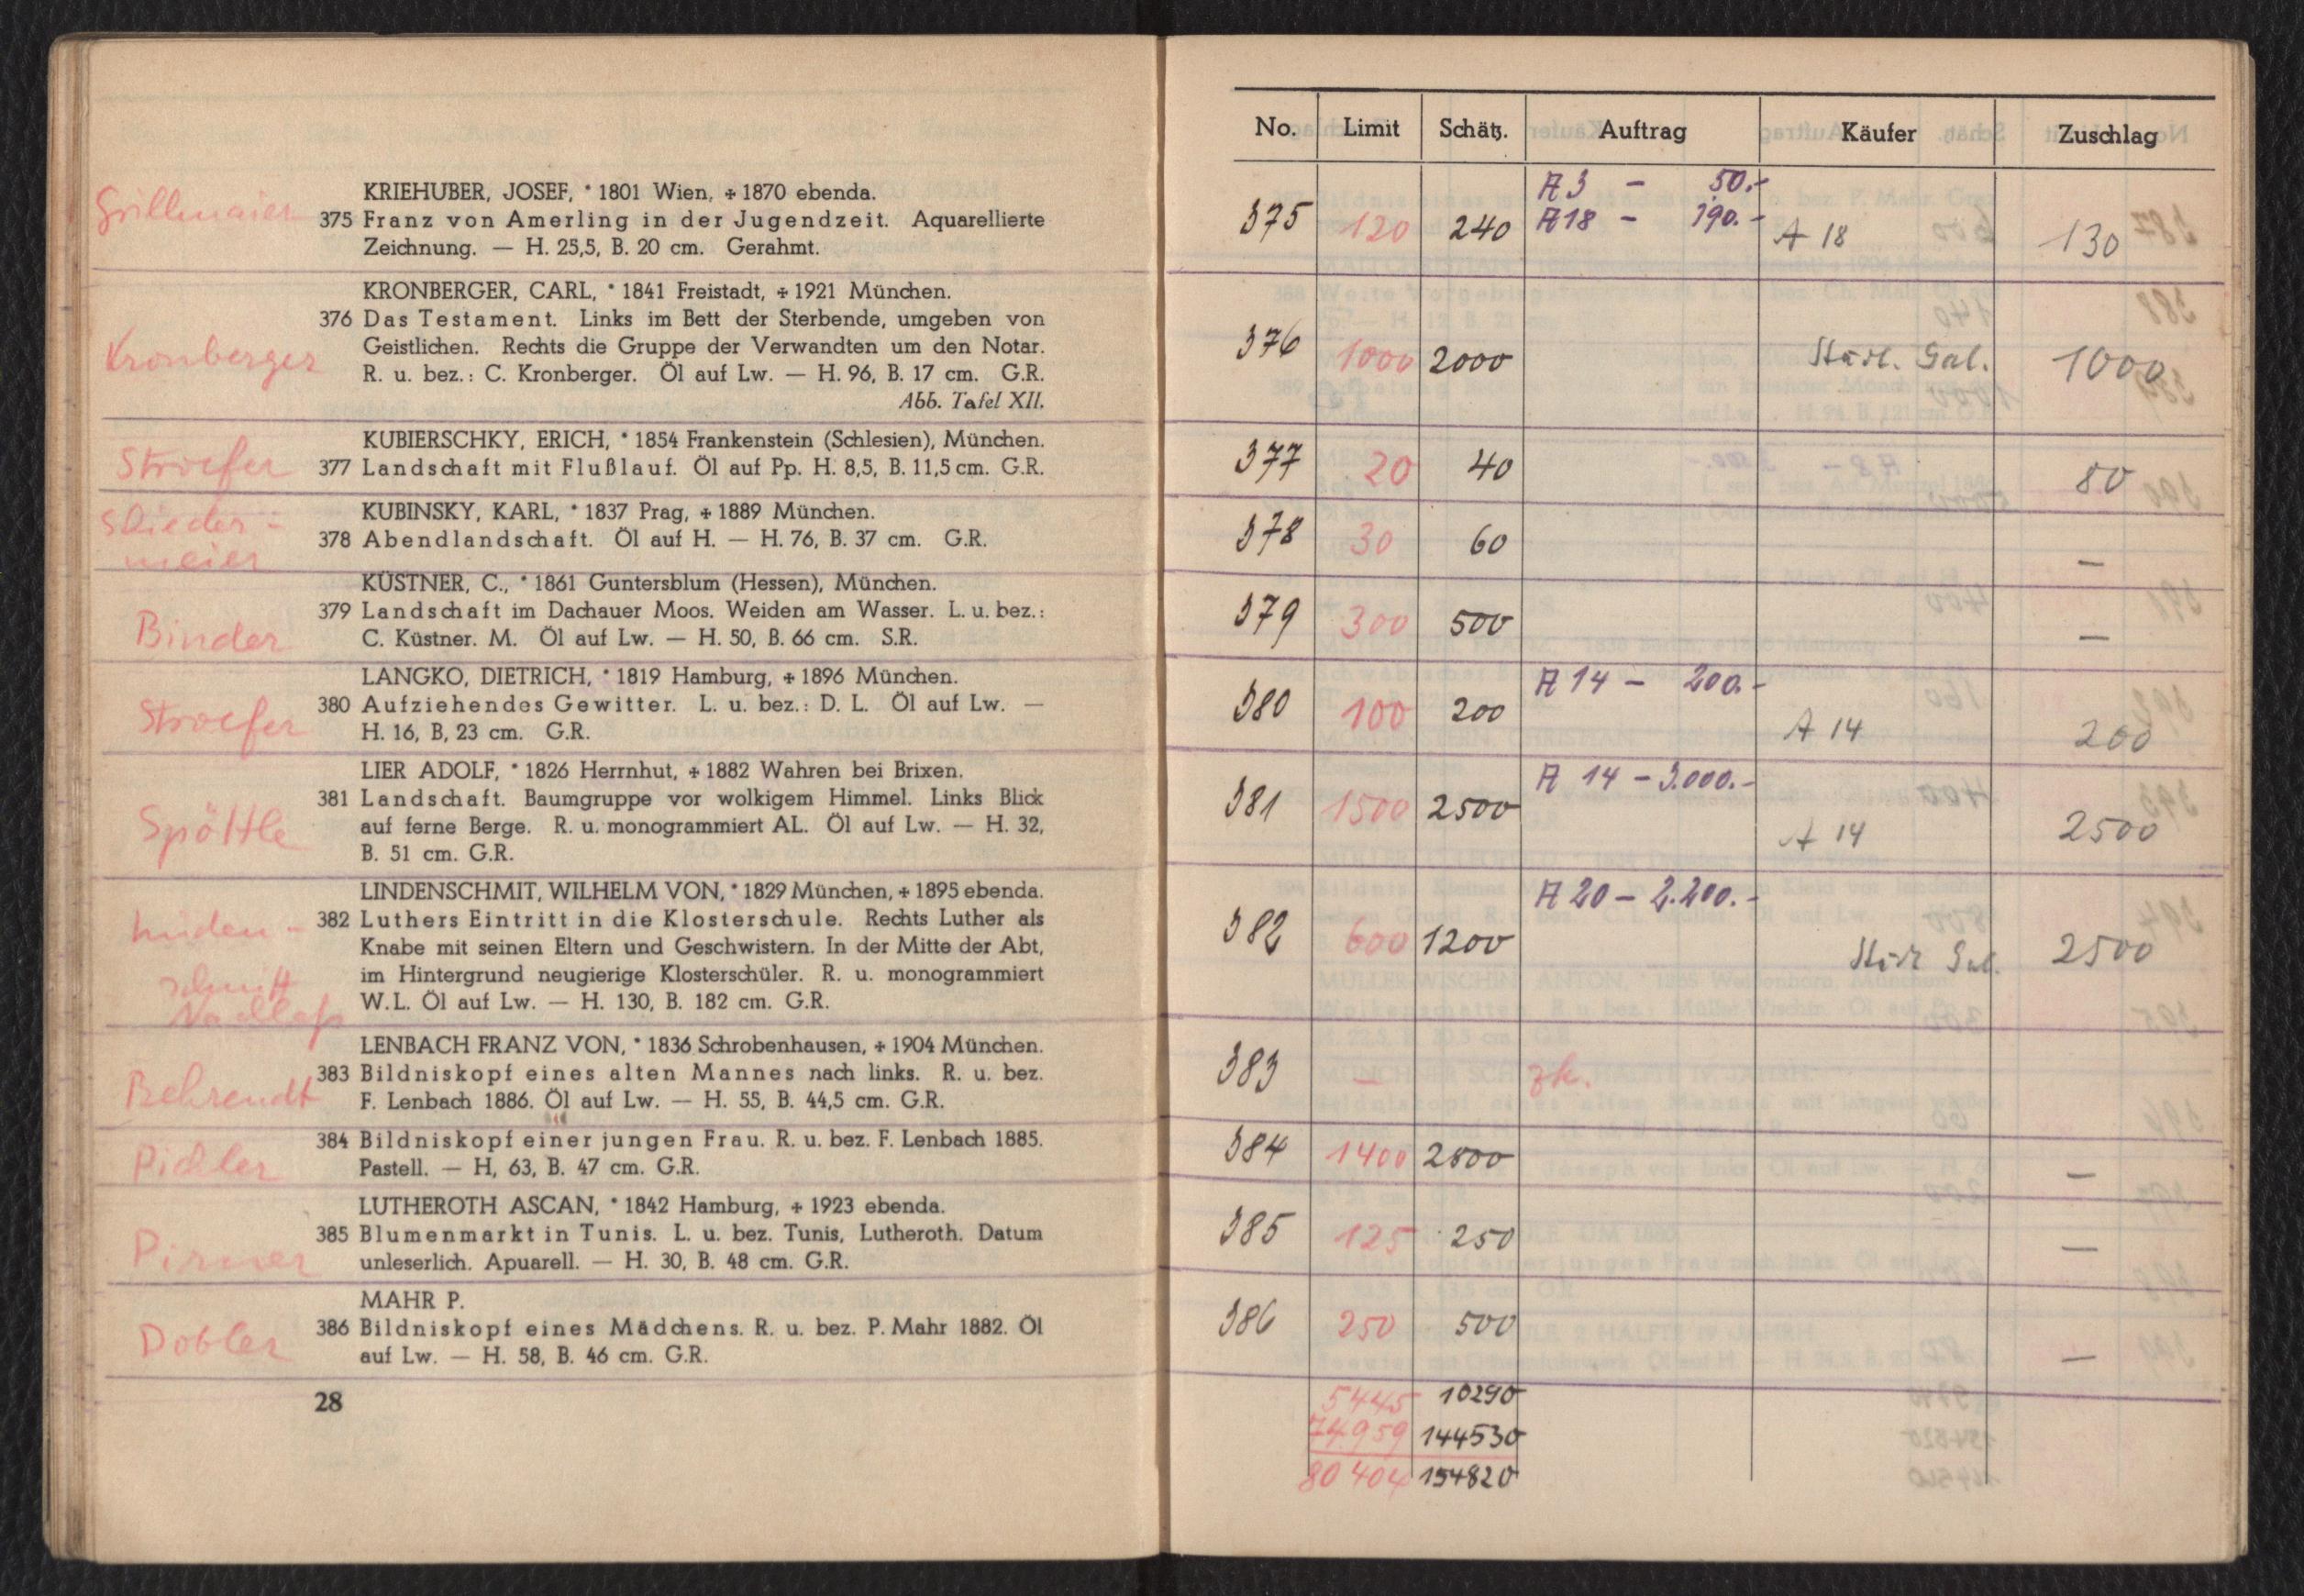 Grillmaier
KRIEHUBER, JOSEF, * 1801 Wien, + 1870 ebenda.
375 Franz von Amerling in der Jugendzeit. Aquarellierte
Zeichnung. — H. 25,5, B. 20 cm. Gerahmt.
Kronberger
KRONBERGER, CARL, * 1841 Freistadt, + 1921 München.
376 Das Testament. Links im Bett der Sterbende, umgeben von
Geistlichen. Rechts die Gruppe der Verwandten um den Notar.
R. u. bez.: C. Kronberger. Öl auf Lw. — H. 96, B. 17 cm. G.R.
Abb. Tafel XII.
Stroefer
KUBIERSCHKY, ERICH, * 1854 Frankenstein (Schlesien), München.
377 Landschaft mit Flußlauf. Öl auf Pp. H. 8,5, B. 11,5 cm. G.R.
meier
KUBINSKY, KARL, * 1837 Prag, + 1889 München.
378 Abendlandschaft. Öl auf H. — H. 76, B. 37 cm. G.R.
Binder
KÜSTNER, C., * 1861 Guntersblum (Hessen), München.
379 Landschaft im Dachauer Moos. Weiden am Wasser. L. u. bez.:
C. Küstner. M. Öl auf Lw. — H. 50, B. 66 cm. S.R.
Stroefer
LANGKO, DIETRICH, * 1819 Hamburg, + 1896 München.
380 Aufziehendes Gewitter. L. u. bez.: D. L. Öl auf Lw. —
H. 16, B, 23 cm. G.R.
Spöttle
LIER ADOLF, * 1826 Herrnhut, + 1882 Wahren bei Brixen.
381 Landschaft. Baumgruppe vor wolkigem Himmel. Links Blick
auf ferne Berge. R. u. monogrammiert AL. Öl auf Lw. — H. 32,
B. 51 cm. G.R.
Linden-
schmitt
Nachlaß
LINDENSCHMIT, WILHELM VON, * 1829 München, + 1895 ebenda.
382 Luthers Eintritt in die Klosterschule. Rechts Luther als
Knabe mit seinen Eltern und Geschwistern. In der Mitte der Abt,
im Hintergrund neugierige Klosterschüler. R. u. monogrammiert
W.L. Öl auf Lw. — H. 130, B. 182 cm. G.R.
Behrendt
LENBACH FRANZ VON, * 1836 Schrobenhausen, + 1904 München.
383 Bildniskopf eines alten Mannes nach links. R. u. bez.
F. Lenbach 1886. Öl auf Lw. — H. 55, B. 44,5 cm. G.R.
Pichler
384 Bildniskopf einer jungen Frau. R. u. bez. F. Lenbach 1885.
Pastell. — H, 63, B. 47 cm. G.R.
Pirner
LUTHEROTH ASCAN, * 1842 Hamburg, + 1923 ebenda.
385 Blumenmarkt in Tunis. L. u. bez. Tunis, Lutheroth. Datum
unleserlich. Apuarell. — H. 30, B. 48 cm. G.R.
Dobler
MAHR P.
386 Bildniskopf eines Mädchens. R. u. bez. P. Mahr 1882. Öl
auf Lw. — H. 58, B. 46 cm. G.R.
28
No. Limit Schätz. Auftrag Käufer Zuschlag
A 3 - 50.-
375 120 240 A 18 - 190.- A 18 130
376 1000 2000 Städt. Gal. 1000
377 20 40 80
378 30 60 —
379 300 500 —
A 14 - 200.-
380 100 200 A 14 200
A 14 - 3.000.-
381 1500 2500 A 14 2500
A 20 - 2.200.-
382 600 1200 Städt Gal. 2500
383 — zk.
384 1400 2800 —
385 125 250 —
386 250 500 —
5445 10290
74959 144530
80404 154820